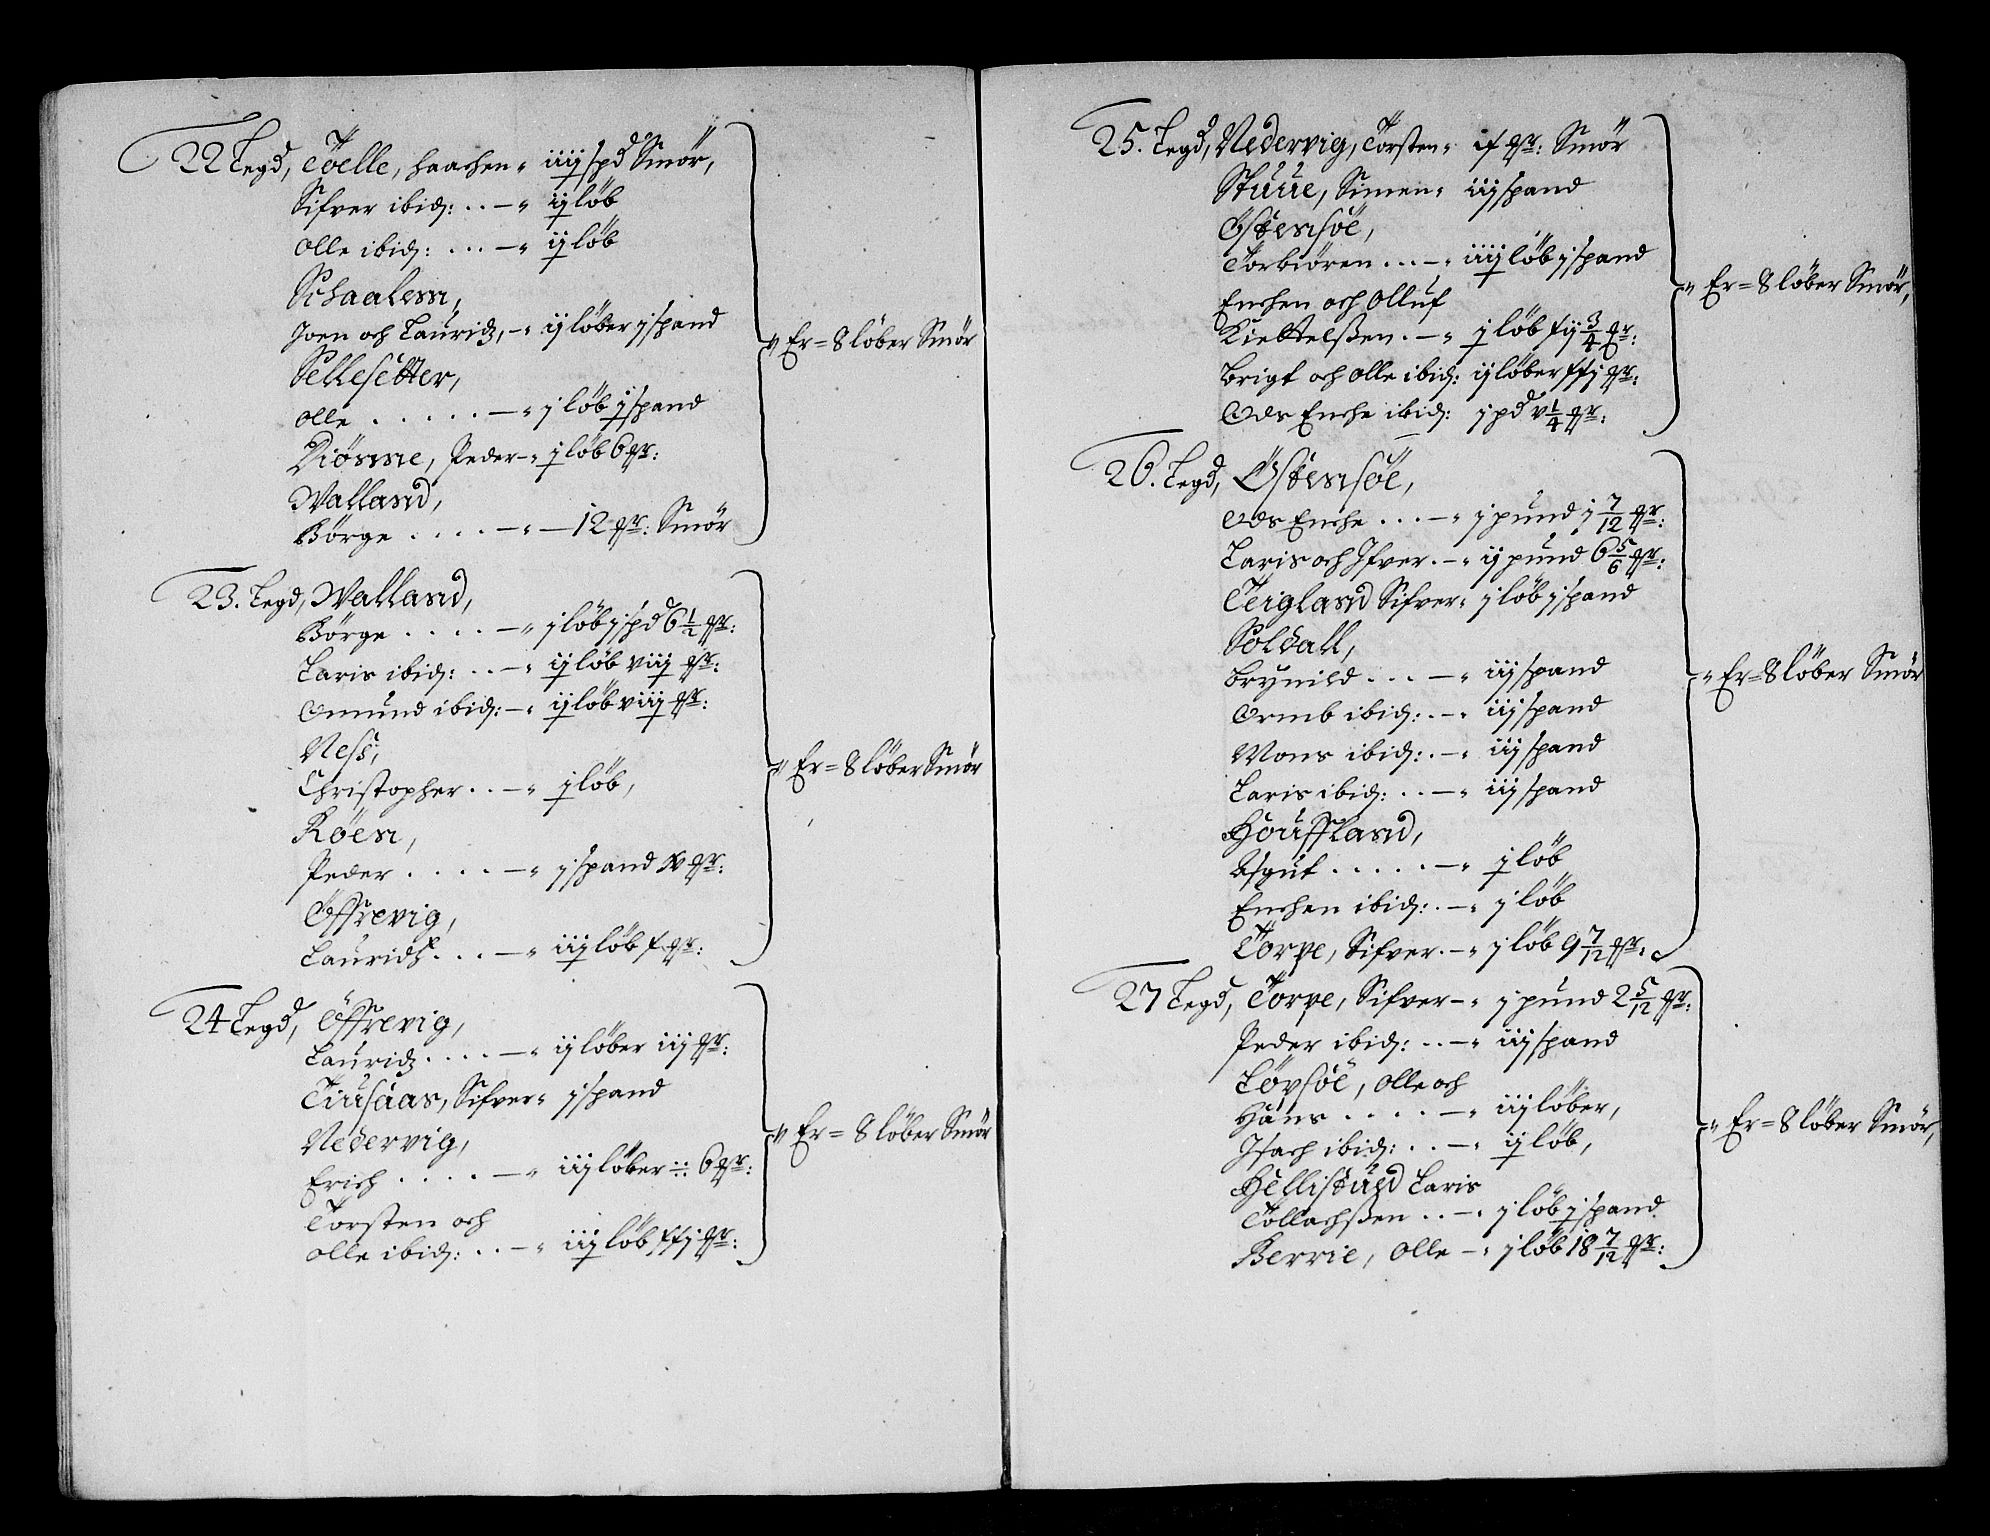 22 Legd, Töelle, Haachen " iiij spd Smör,
Sifver ibid: . . — " ij löb
Olle ibid: . . . — " ij löb
Schaalem,
Joen och Lauridz, — " ij löber j spand
Sellesetter,
Olle . . . . . — " j löb j spand
Diösme, Peder — " j löb 6 mr:
Walland,
Börge . . . . — " — 12 mr: Smör
" Er = 8 löber Smör
23. Legd, Walland,
Börge . . . . — " j löb j spd 6 1/2 mr:
Laris ibid: . . — " ij löb viij mr:
Omund ibid: — " ij löb viij mr:
Ness,
Christopher . . — " j löb,
Röen,
Peder . . . . — " j spand x mr:
Öffrevig,
Lauridz . . . — " iij löb x mr:
" Er = 8 löber Smör
24 Legd, Öffrevig,
Lauridz . . . . — " ij löber iij mr:
Tiusaas, Sifver " j spand
Nedervig,
Erich . . . . — " iij löber ÷ 6 mr:
Torsten och
Olle ibid: . . — " iij löb xxj mr:
" Er = 8 löber Smör
25. Legd, Nedervig, Torsten " ix mr: Smör
Stuue, Simen " iij spand
Östensöe,
Torbiören . . . — " iiij löb j spand
Enchen och Olluf
Kiettelßen . — " j löb xij 3/4 mr:
Brigt och Olle ibid: ij löber xxj mr:
Ods Enche ibid: j pd v 1/4 mr:
" Er = 8 löber Smör,
26. Legd, Östensöe,
Ods Enche . . . — " j pund j 7/12 mr:
Laris och Ifver . — " ij pund 6 5/6 mr:
Teigland Sifver " j löb j spand
Soldall,
Brynild . . . — " iij spand
Ormb ibid: . — " iij spand
Mons ibid: . — " iij spand
Laris ibid: . . — " iij spand
Houffland,
Asgut . . . . . — " j löb
Enchen ibid: . — " j löb
Torpe, Sifver . — " j löb 9 7/12 mr:
" Er = 8 löber Smör
27 Legd, Torpe, Sifver — " j pund 2 5/12 mr:
Peder ibid: . . — " iij spand
Lövsöe, Olle och
Hans . . . . — " iij löber,
Isach ibid: . . — " ij löb,
Hellistued Laris
Tollachßen . . — " j löb j spand
Berrie, Olle — " j löb 18 7/12 mr:
" Er = 8 löber Smör,